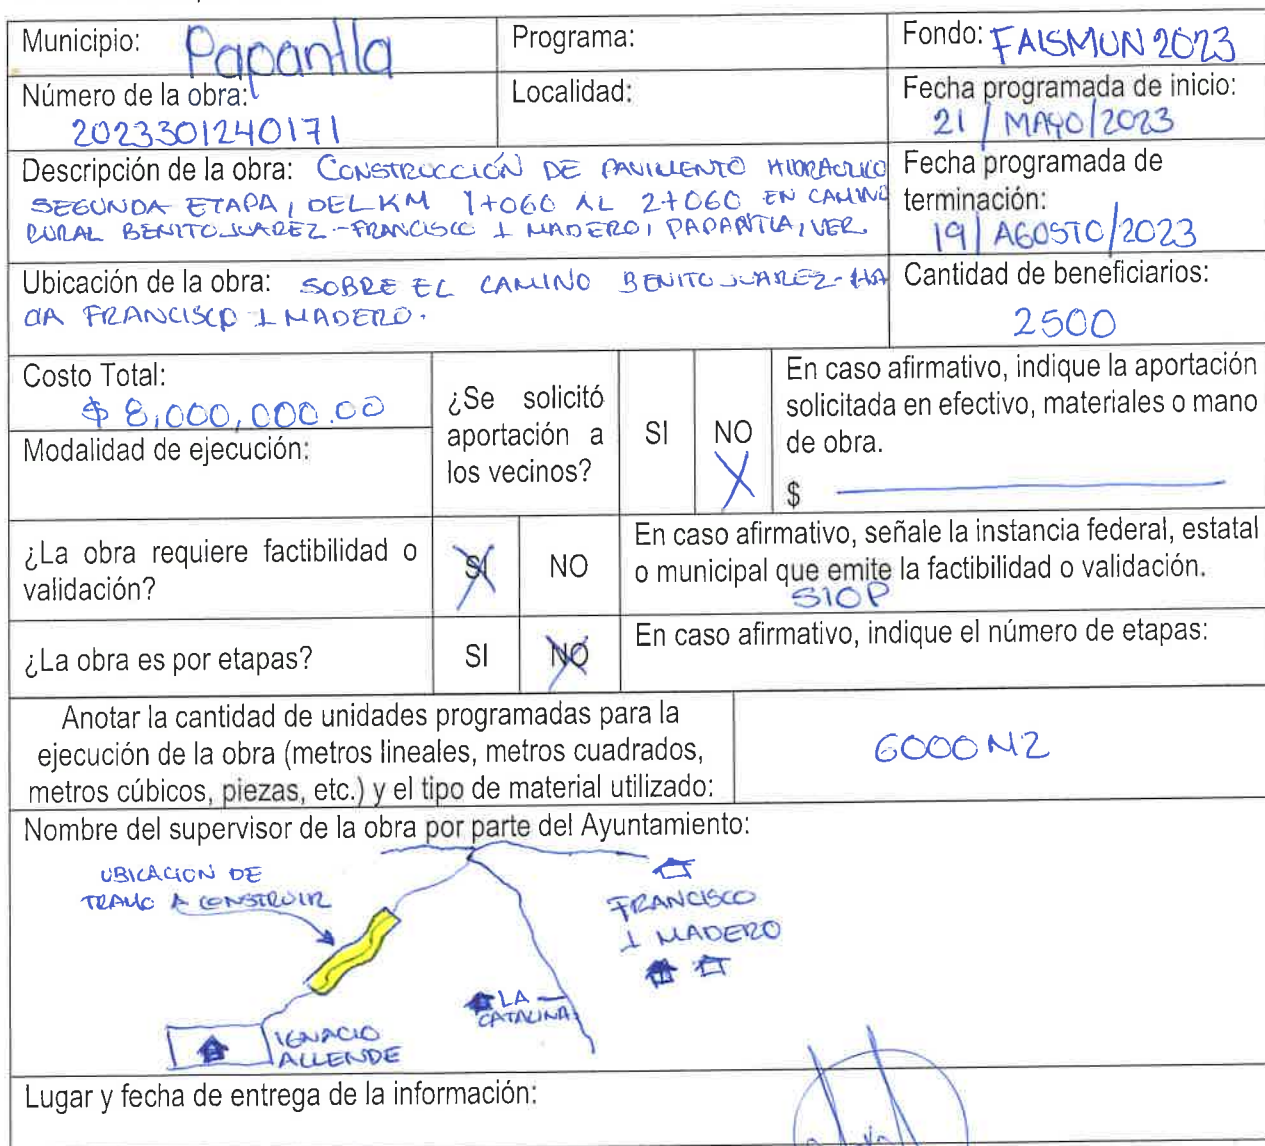 Municipio: Papantla
Programa:
Fondo: FAISMUN 2023
Número de la obra:
2023301240171
Localidad:
Fecha programada de inicio:
21 / MAYO / 2023
Descripción de la obra: CONSTRUCCIÓN DE PAVIMENTO HIDRAULICO
SEGUNDA ETAPA, DEL KM 1+060 AL 2+060 EN CAMINO
RURAL BENITO JUAREZ-FRANCISCO I MADERO, PAPANTLA, VER.
Fecha programada de
terminación:
19 / AGOSTO / 2023
Ubicación de la obra: SOBRE EL CAMINO BENITO JUAREZ-HA
CIA FRANCISCO I MADERO.
Cantidad de beneficiarios:
2500
Costo Total:
$ 8,000,000.00
Modalidad de ejecución:
¿Se solicitó
aportación a
los vecinos?
SI
NO
X
En caso afirmativo, indique la aportación
solicitada en efectivo, materiales o mano
de obra.
$
¿La obra requiere factibilidad o
validación?
SI
NO
En caso afirmativo, señale la instancia federal, estatal
o municipal que emite la factibilidad o validación.
SIOP
¿La obra es por etapas?
SI
NO
En caso afirmativo, indique el número de etapas:
Anotar la cantidad de unidades programadas para la
ejecución de la obra (metros lineales, metros cuadrados,
metros cúbicos, piezas, etc.) y el tipo de material utilizado:
6000 M2
Nombre del supervisor de la obra por parte del Ayuntamiento:
UBICACION DE
TRAMO A CONSTRUIR
FRANCISCO
I MADERO
LA
CATALINA
IGNACIO
ALLENDE
Lugar y fecha de entrega de la información: